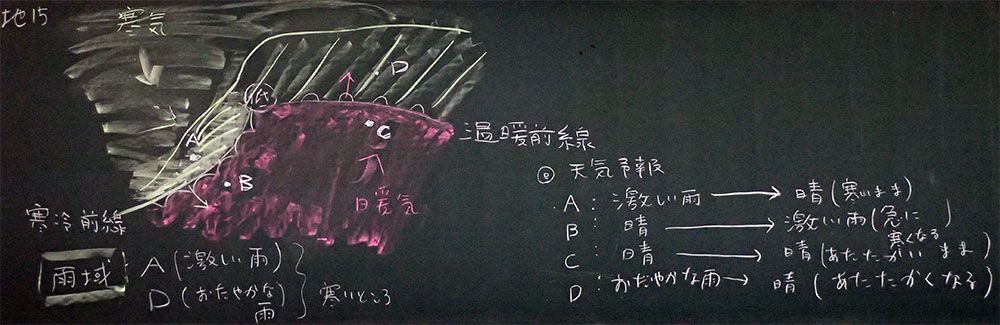 地15
寒気
D
低
A
C
B
温暖前線
暖気
寒冷前線
雨域
A (激しい雨)
D (おだやかな雨)
寒いところ
◎ 天気予報
A: 激しい雨 → 晴 (寒いまま)
B: 晴 → 激しい雨 (急に寒くなる)
C: 晴 → 晴 (あたたかいまま)
D: おだやかな雨 → 晴 (あたたかくなる)